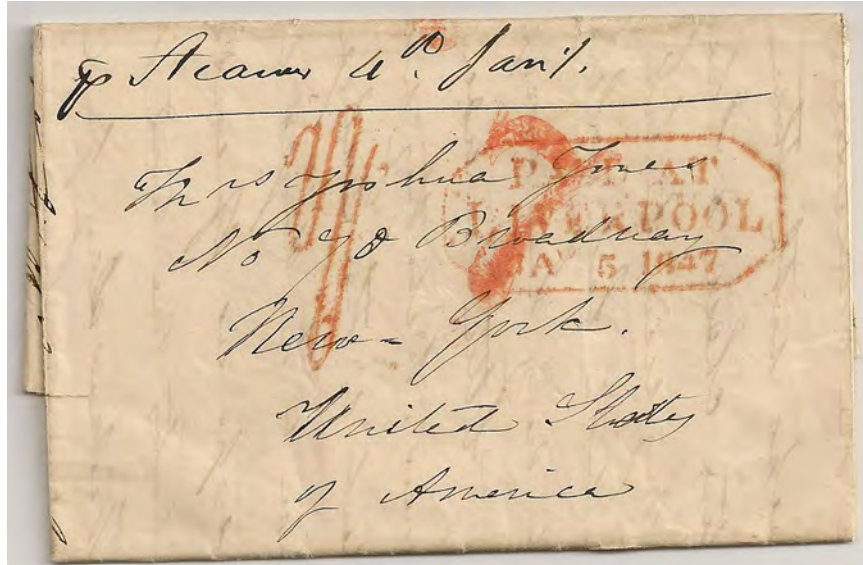 p Steamer 4th Jany.
Mrs Joshua Jones
No 78 Broadway
New-York.
United States
of America
PAID AT
LIVERPOOL
JA 5 1847
1/
7